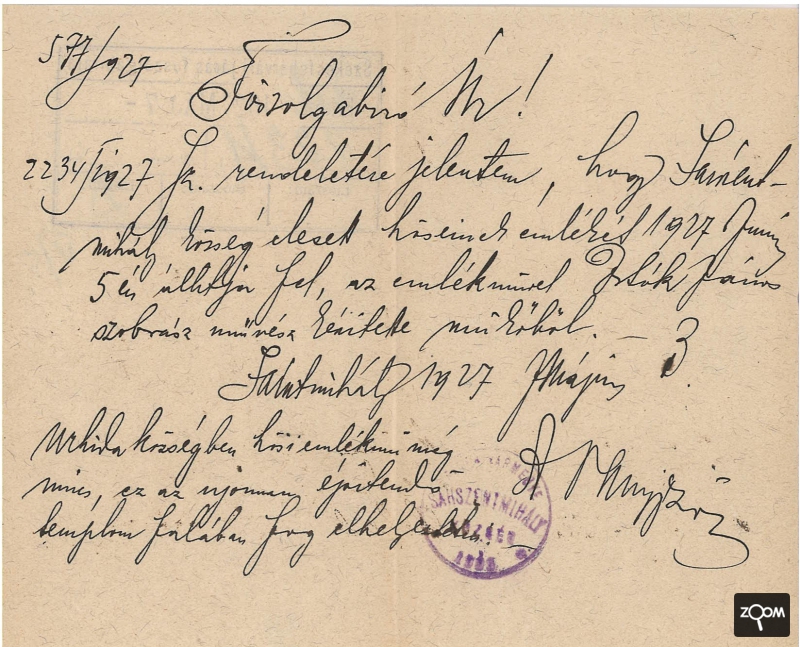 577/1927
Főszolgabiró Úr!
2234/1927 sz. rendeletére jelentem, hogy Sárszent-
mihály község elesett hőseinek emlékét 1927 Junius
5 én állitja fel, az emlékművet Istók János
szobrász művész készitette műkőből. —
Szentmihály 1927 Május 3
Urhida községben hősi emlékmű még
nincs, ez az ujonnan épitendő
templom falában fog elhelyeződni. —
SÁRSZENTMIHÁLY
KÖZSÉG
ZOOM